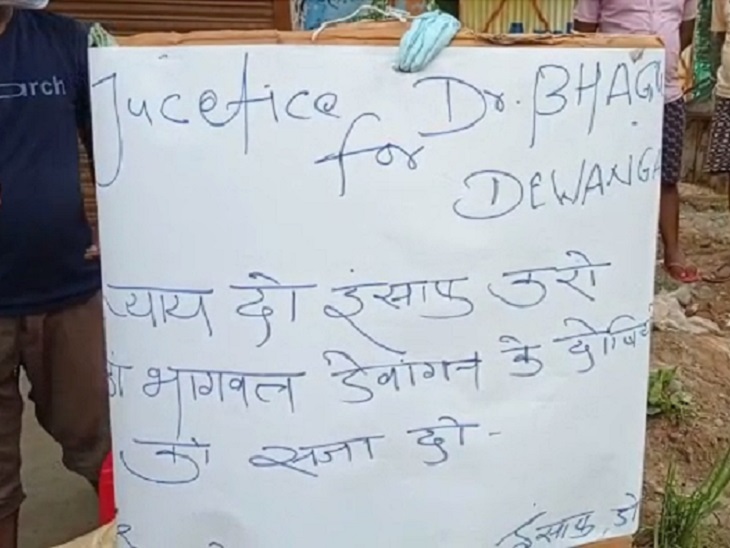 arch
Jucefice Dr. BHAGW
for DEWANGA
न्याय दो इंसाफ करो
डॉ भागवत देवांगन के दोषियों
को सजा दो -
इंसाफ दो